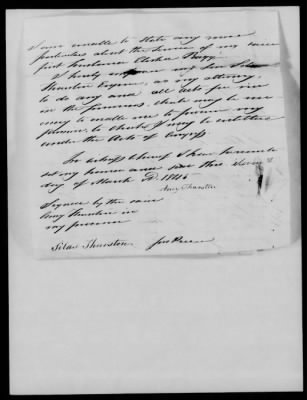 I am unable to state any more
particulars about the service of my said
first husband Clerker Rugg
I hereby my son Silas
Thurston Esquire, as my attorney
to do any and all acts for me
in the premises, that may be nec
essary to enable me to procure any
pension to which I may be entitled
under the Acts of Congress
In witness whereof I have hereunto
set my hand and seal this
day of March AD. 1846
Amy Thurston
Signed by the said
Amy Thurston in
my presence
Silas Thurston